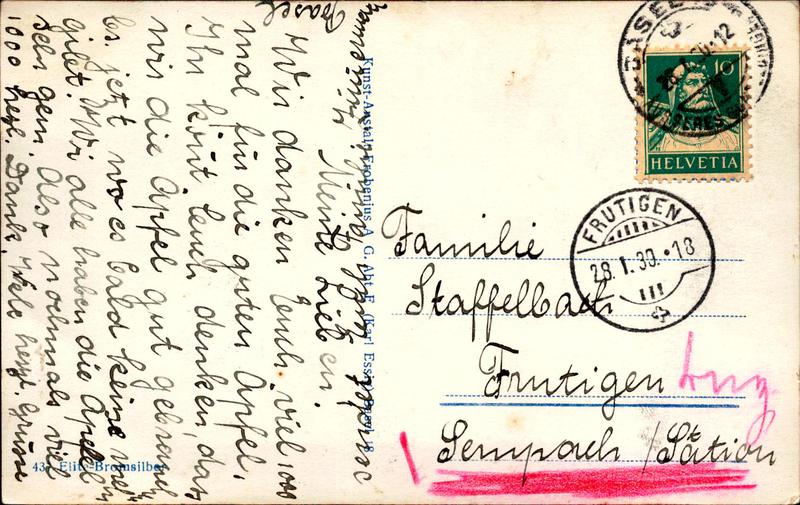 Basel
Meine Lieben.
Wir danken Euch viel 1000
mal für die guten Apfel.
Ihr könt Euch denken, das
wir die Apfel gut gebrauch
en. jetzt wo es bald keine mehr
giebt. Wir alle haben die Apfel
sehr gern. Also nochmals viel
1000 herzl. Dank. Viele herzl. Grüsse
Kunst-Anstalt Frobenius A. G. Abt. F. (Karl Essig) Basel 18
43 Elite-Bromsilber
BASEL
26.I.30.-12
10
HELVETIA
FRUTIGEN
28.I.30.-18
Familie
Staffelbach
Frutigen Luz
Sempach / Station